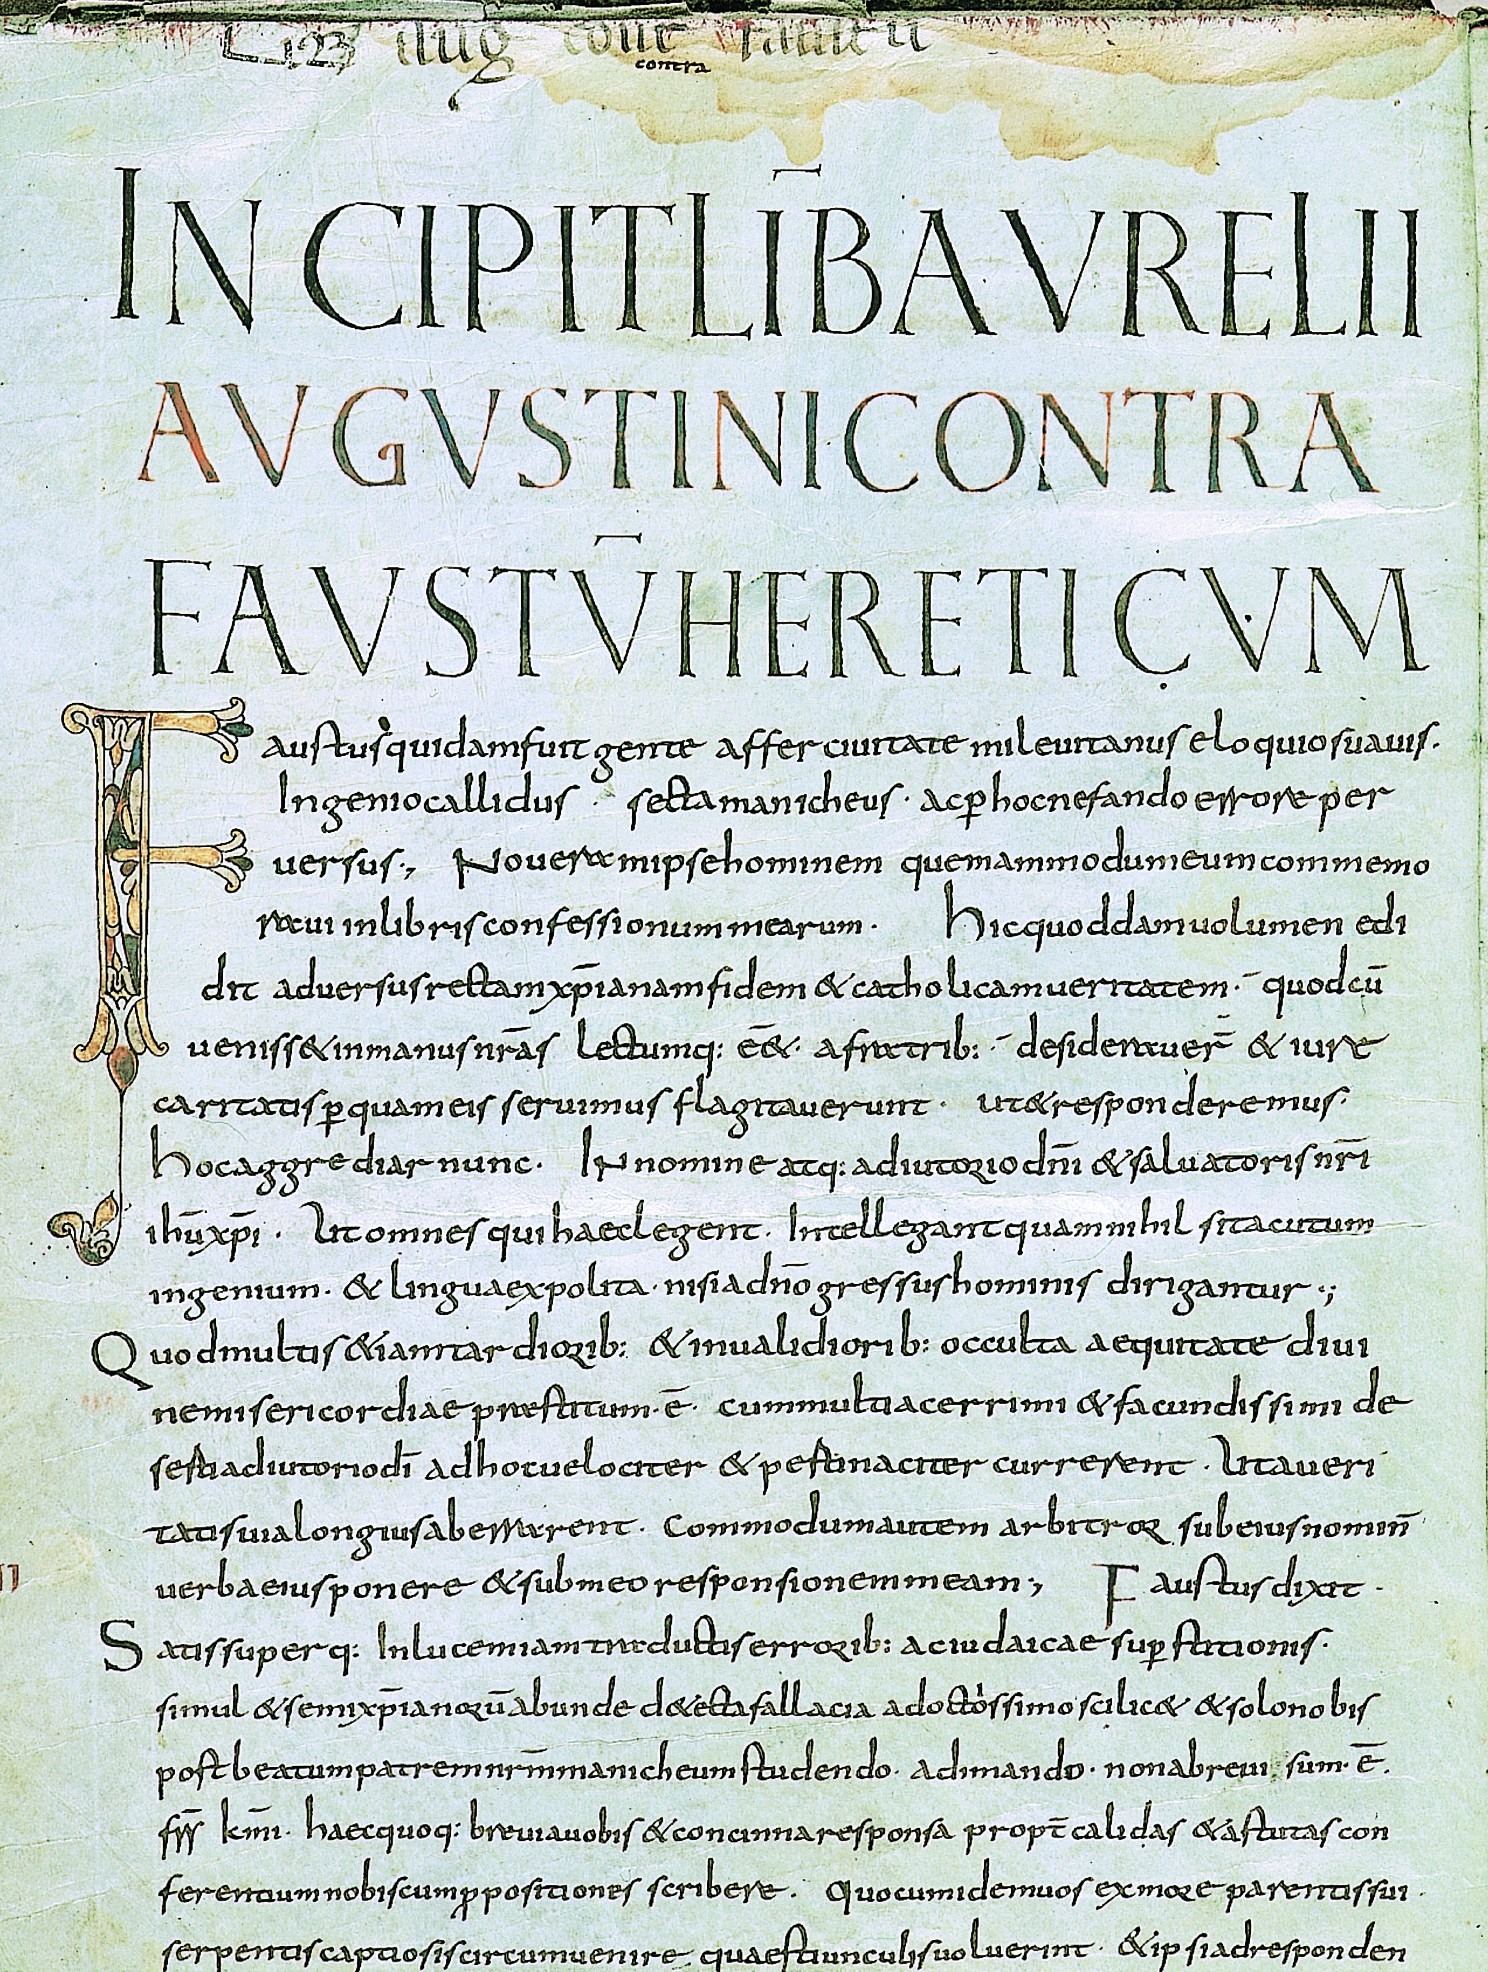 Lib aug cont faustū
contra
INCIPIT LIB̄ AVRELII
AVGVSTINI CONTRA
FAVSTV̄ HERETICVM
Faustus quidam fuit gente affer ciuitate mileuitanus eloquio suauis·
Ingenio callidus · secta manicheus · ac ꝑ hoc nefando errore per
uersus·, Noueram ipse hominem quemammodum eum commemo
raui in libris confessionum mearum · hic quoddam uolumen edi
dit aduersus rectam xp̄ianam fidem & catholicam ueritatem · quod cū
ueniss& in manus nr̄as lectumq: e͞& · a fratrib: · desiderauer̄ & iure
caritatis ꝑ quam eis seruimus flagitauerunt · ut & responderemus ·
hoc aggrediar nunc · IN nomine atq: adiutorio dn̄i & saluatoris nr̄i
ih̄u xp̄i · Ut omnes qui haec legent · Intellegant quam nihil sit acutum
ingenium · & lingua expolita · nisi a dn̄o gressus hominis dirigantur ·;
Quod multis & iam tardiorib: & inualidiorib: occulta aequitate diui
ne misericordiae praestitum · ē · cum multi acerrimi & facundissimi de
serti adiutorio dī ad hoc uelociter & pertinaciter currerent · Ut a ueri
tatis uia longius aberrarent · Commodum autem arbitror sub eius nomin̄
uerba eius ponere & sub meo responsionem meam ·; Faustus dixit ·
Satis superq: In lucem iam traductis errorib: ac iudaicae suꝑstitionis ·
simul & semixp̄ianorū abunde d&ecta fallacia a doctissimo scilic& & solo nobis
post beatum patrem nr̄m manicheum studendo · adimando · non ab re uisum · ē ·
fr̄r̄s̄ km̄i · haec quoq: breuia uobis & concinna responsa propt̄ calidas & astutas con
ferentium nobiscum ꝓpositiones scribere · Quo cum idem uos ex more parentis sui
serpentis captiosis circumuenire quaestiunculis uoluerint · & ipsi ad responden
II